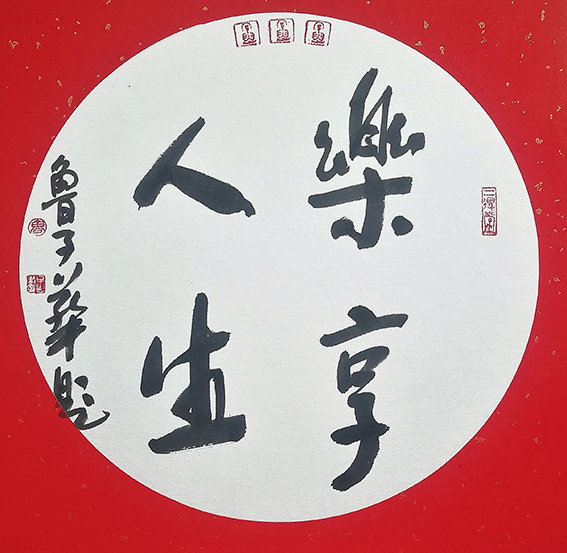 樂享
人生
魯子華題